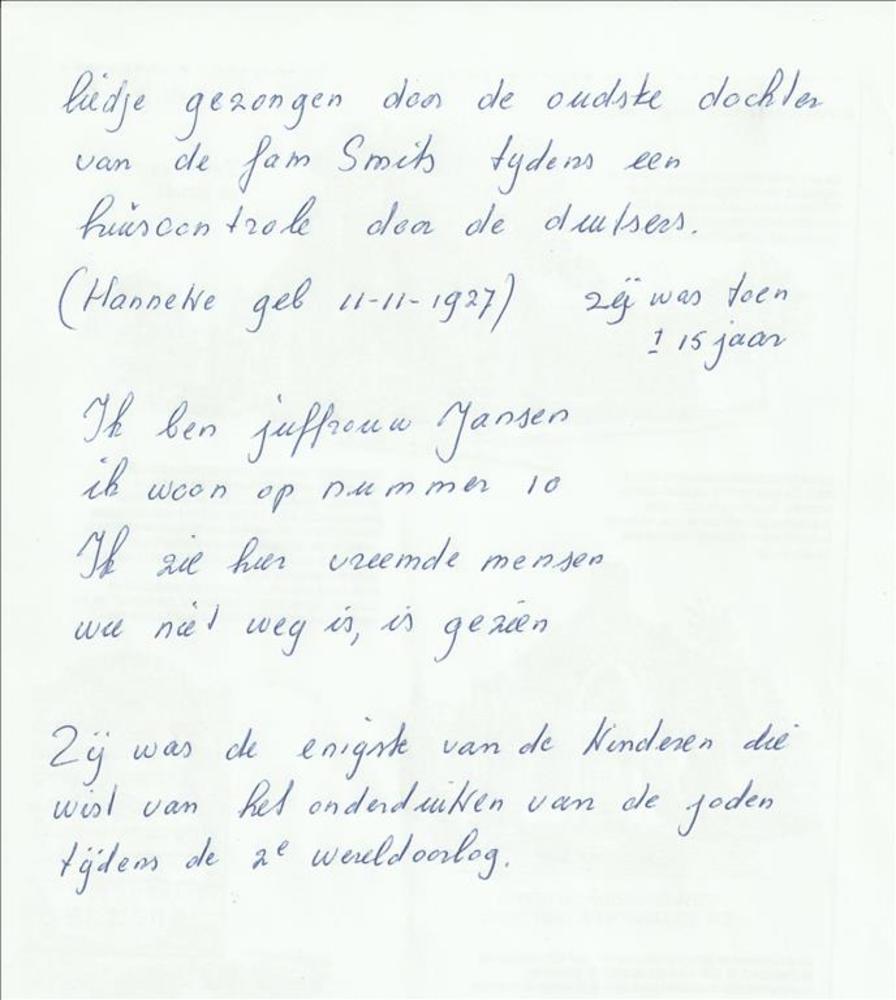 liedje gezongen door de oudste dochter
van de fam Smits tydens een
huiscontrole door de duitsers.
(Hanneke geb 11-11-1927) zÿ was toen
± 15 jaar
Ik ben juffrouw Jansen
ik woon op nummer 10
Ik zie hier vreemde mensen
wie niet weg is, is gezien
Zÿ was de enigste van de kinderen die
wist van het onderduiken van de joden
tÿdens de 2e wereldoorlog.